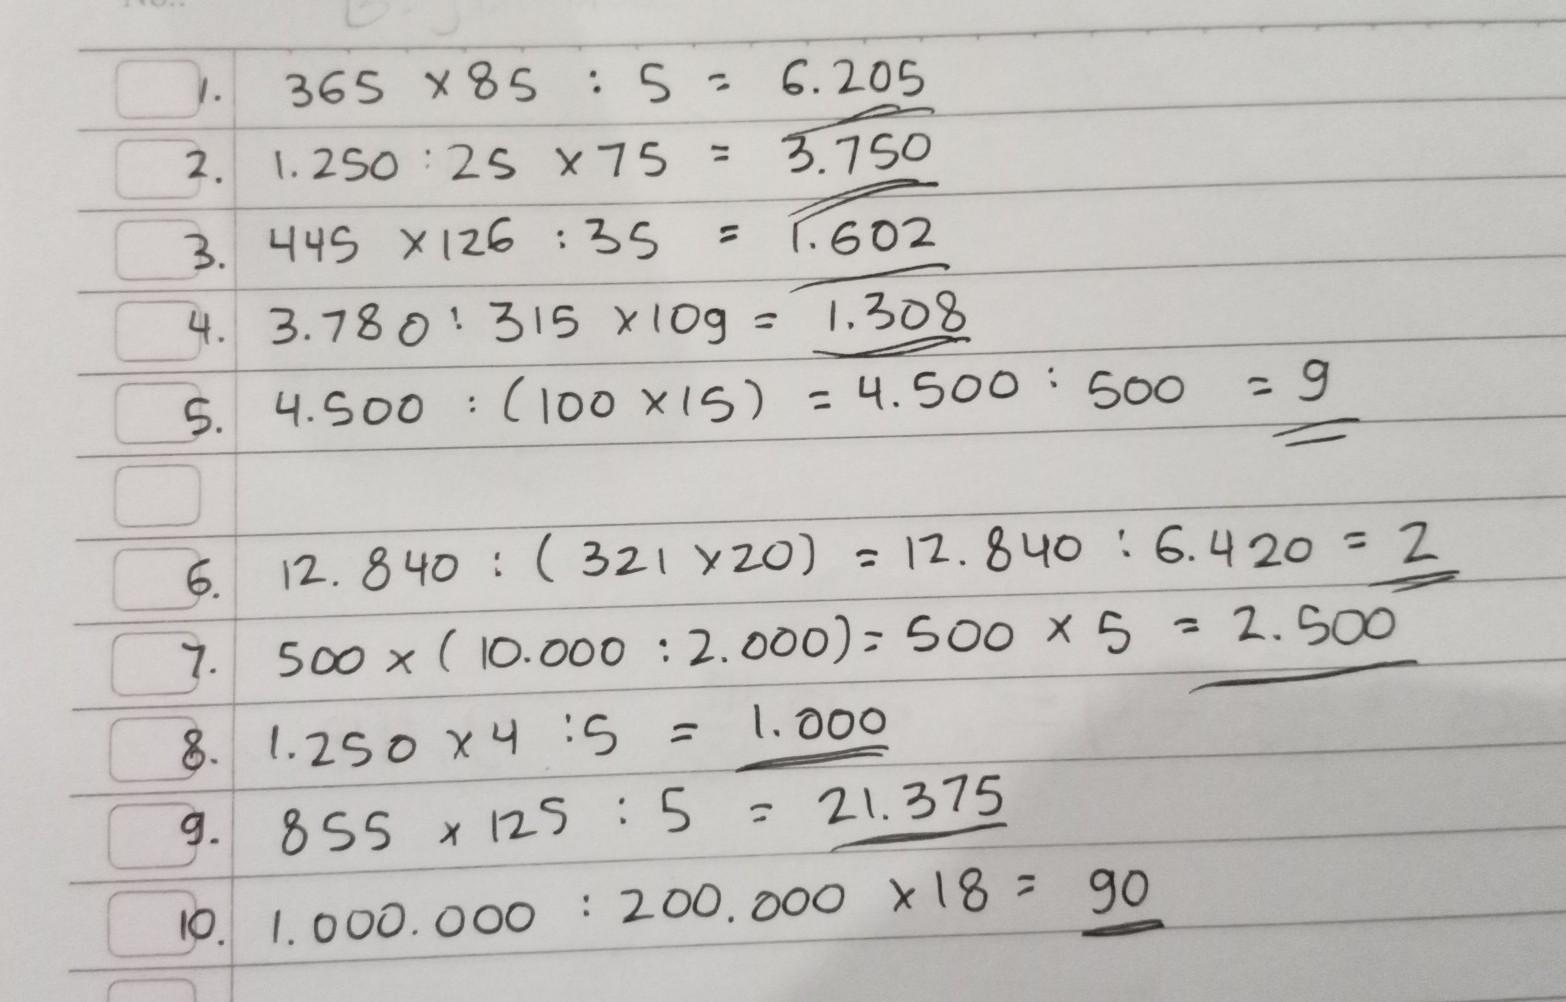 1. 365 x 85 : 5 = 6.205
2. 1.250 : 25 x 75 = 3.750
3. 445 x 126 : 35 = 1.602
4. 3.780 : 315 x 109 = 1.308
5. 4.500 : (100 x 15) = 4.500 : 500 = 9
6. 12.840 : (321 x 20) = 12.840 : 6.420 = 2
7. 500 x (10.000 : 2.000) = 500 x 5 = 2.500
8. 1.250 x 4 : 5 = 1.000
9. 855 x 125 : 5 = 21.375
10. 1.000.000 : 200.000 x 18 = 90